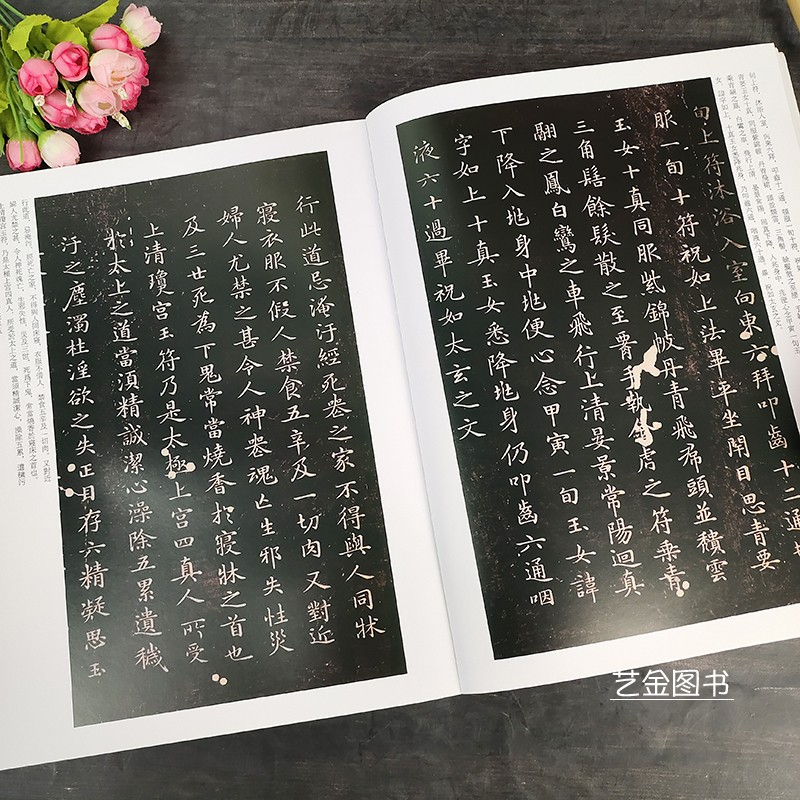 旬上符沐浴入室向東六拜叩齒十二通
服一旬十符祝如上法畢平坐閉目思青要
玉女十真同服紫錦帔丹青飛帬頭並穨雲
三角髻餘髮散之至腰手執金虎之符乘青
翮之鳳白鸞之車飛行上清晏景常陽迴真
下降入兆身中兆便心念甲寅一旬玉女諱
字如上十真玉女悉降兆身仍叩齒六通咽
液六十過畢祝如太玄之文
行此道忌淹汙經死喪之家不得與人同牀
寢衣服不假人禁食五辛及一切肉又對近
婦人尤禁之甚令人神喪魂亡生邪失性災
及三世死為下鬼常當燒香於寢牀之首也
上清瓊宮玉符乃是太極上宮四真人所受
於太上之道當須精誠潔心澡除五累遺穢
汙之塵濁杜淫欲之失正目存六精凝思玉
艺金图书